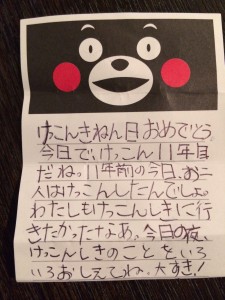 けっこんきねん日おめでとう
今日で、けっこん11年目
だね。11年前の今日、お二
人はけっこんしたんでしょ。
わたしもけっこんしきに行
きたかったなよあ。今日の夜、
けっこんしきのことをいろ
いろおしえてね。大すき!